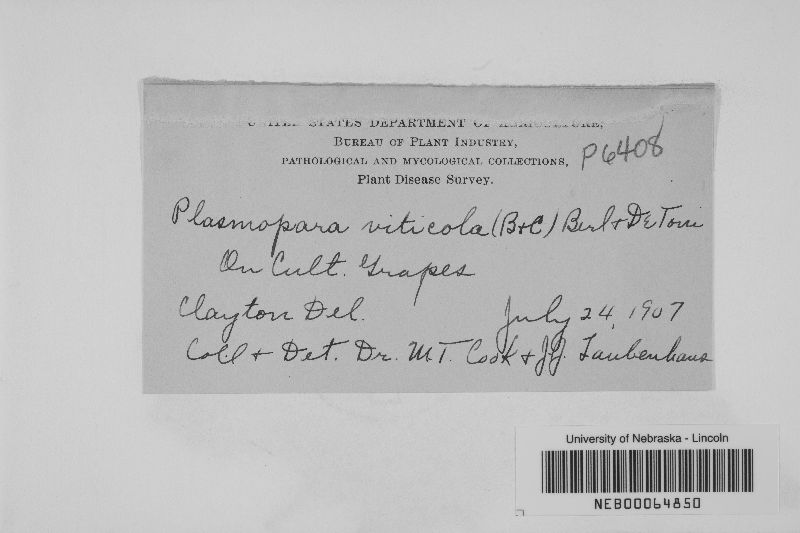 UNITED STATES DEPARTMENT OF AGRICULTURE,
BUREAU OF PLANT INDUSTRY,
PATHOLOGICAL AND MYCOLOGICAL COLLECTIONS,
Plant Disease Survey.
P6408
Plasmopara viticola (B+C) Berl + De Toni
On Cult. Grapes
Clayton Del. July 24, 1907
Coll + Det. Dr. M.T. Cook + J.J. Taubenhaus
University of Nebraska - Lincoln
NEB00064850